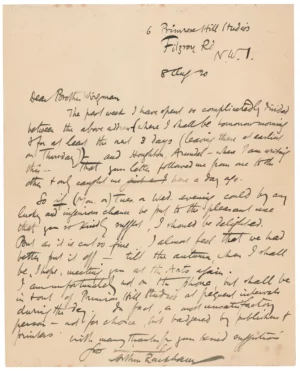 6 Primrose Hill Studios
Fitzroy Rd
N.W.1.
8 Aug 20
Dear Brother Wigman
The past week I have spent so complicatedly divided
between the above address (where I shall be tomorrow morning
& for at least the next 3 days (leaving there at earliest
on Thursday)) and Houghton Arundel – where I am writing
this – that your letter followed me from one to the
other & only caught me here a day ago.
So if (Mon or) Tues or Wed. evening could by any
lucky chance be put to the pleasant use
that you so kindly suggest, I should be delighted.
But as it is cut so fine, I almost feel that we had
better put it off – till the autumn when I shall
be, I hope, meeting you at the Arts again.
I am unfortunately not on the phone but shall be
in & out of Primrose Hill Studios at frequent intervals
during the day. In fact, a most unsatisfactory
person – not for choice, but badgered by publishers &
printers. With many thanks for your kind suggestion
Yrs
Arthur Rackham